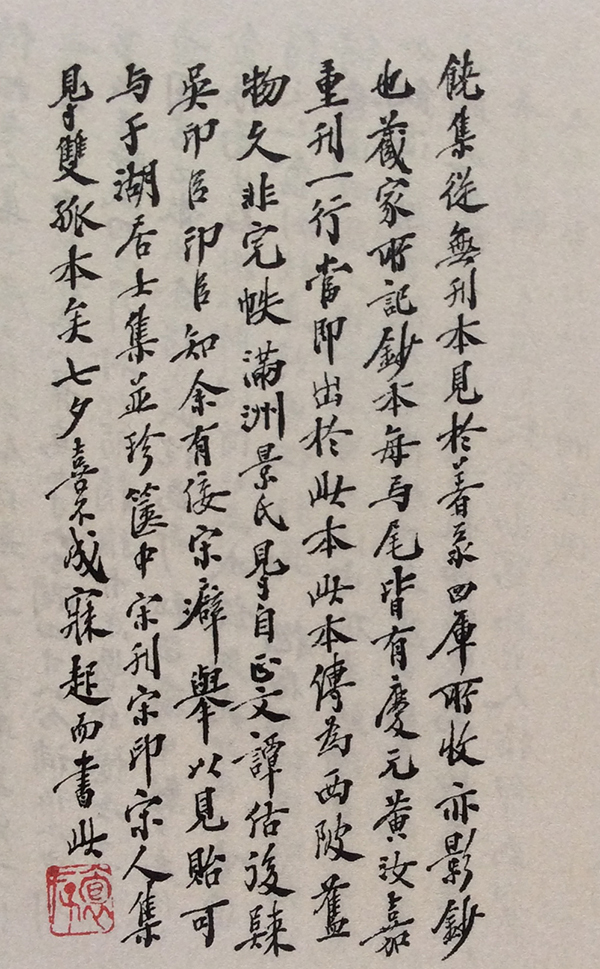 饒集從無刊本見於著录四庫所收亦影鈔
也藏家所記鈔本每与尾皆有慶元黃汝嘉
重刊一行當即出於此本此本傳為西陂舊
物久非完帙滿洲景氏㝵自正文譚估後歸
吳印臣印臣知余有佞宋癖舉以見貽可
与于湖居士集並珍箧中宋刊宋印宋人集
㝵雙孤本矣七夕喜不成寐起而書此